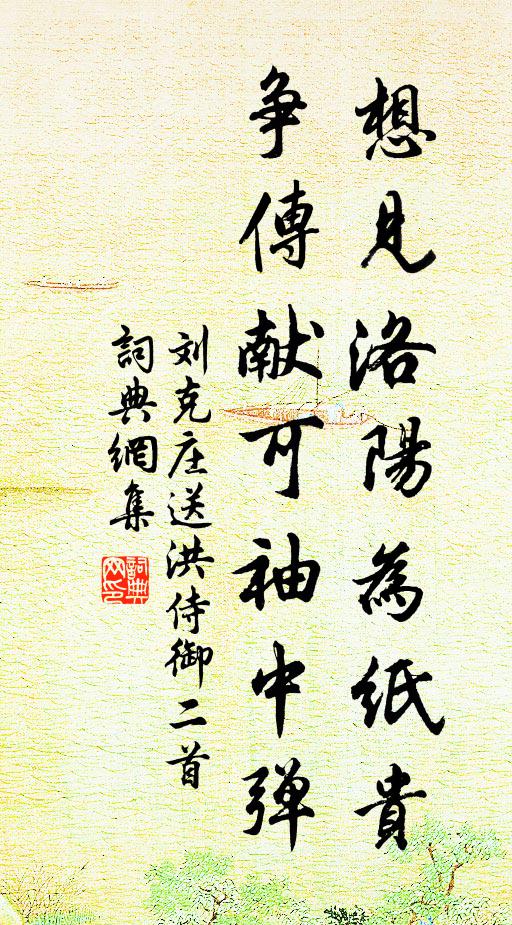 想見洛陽為紙貴
争傳献可袖中弹
刘克庄送洪侍御二首
詞典網集
詞典网印